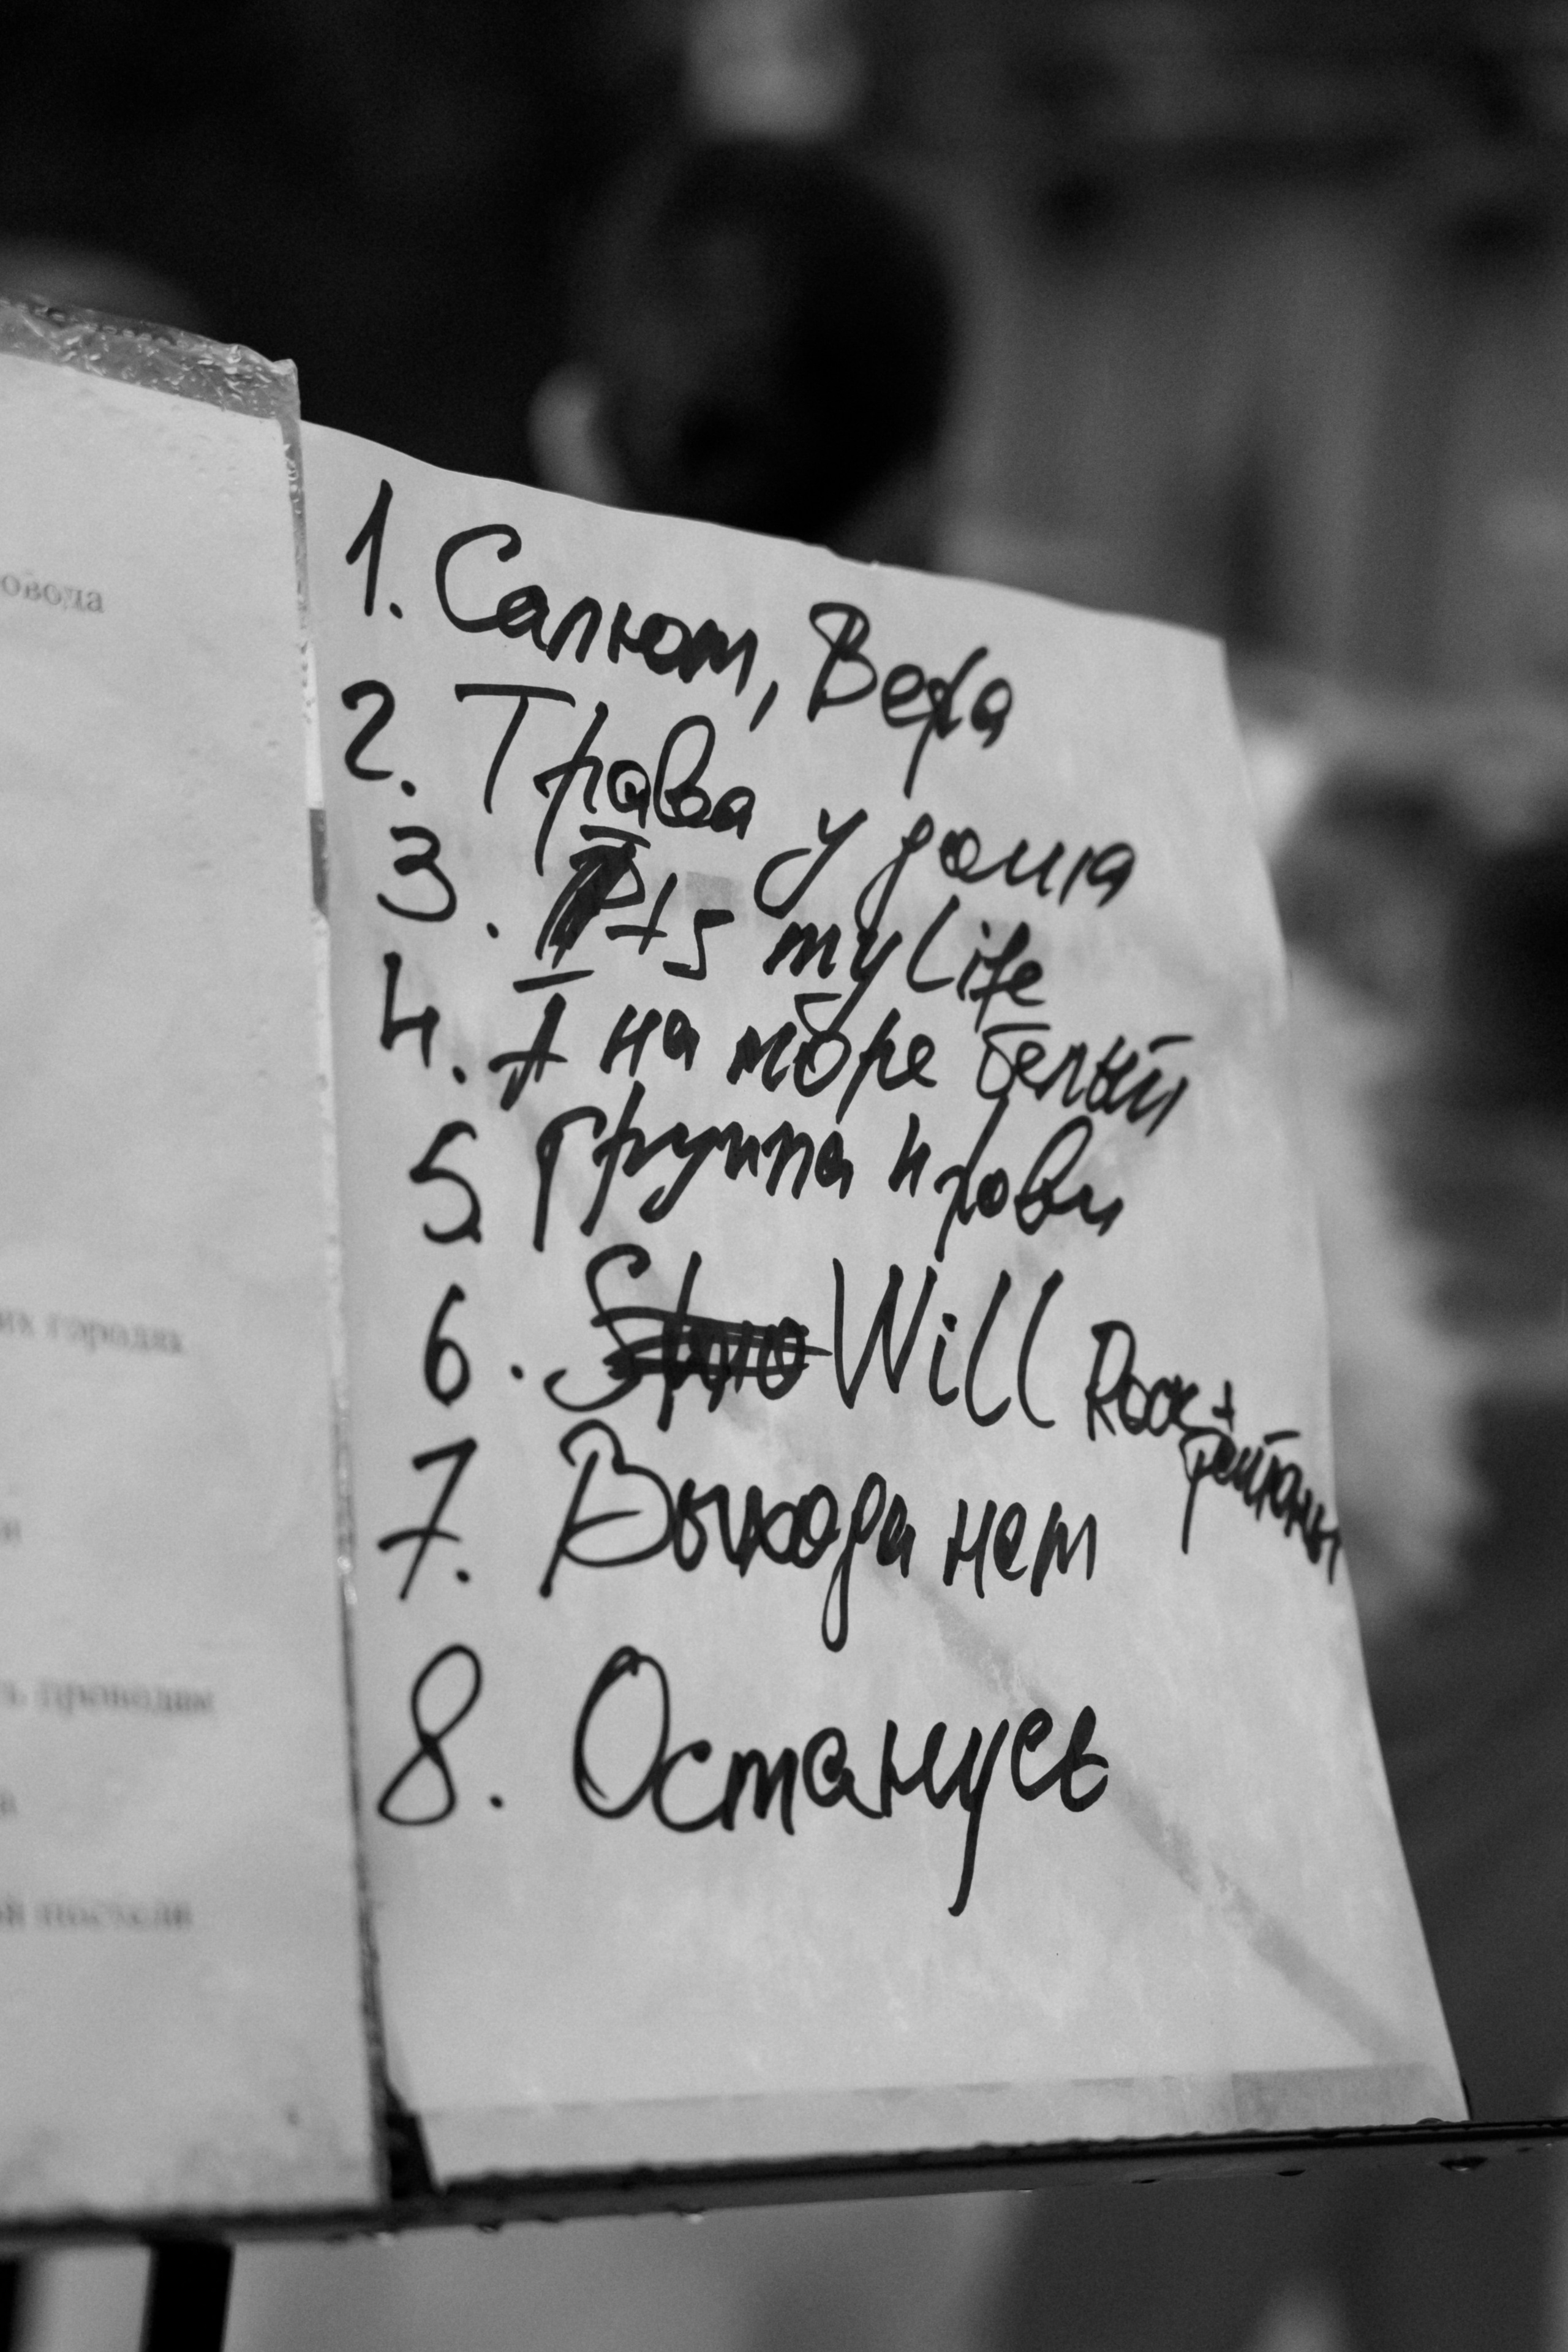 овода
их городах
ь проводам
й постели
1. Салют, Вера
2. Трава у дома
3. It's my Life
4. А на море белый
5. Группа крови
6. Will Rock +
7. Выхода нет
8. Останусь